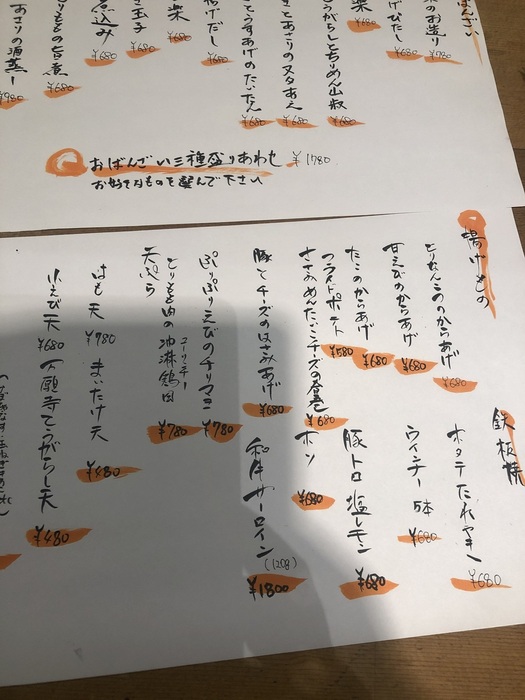 のお造り
¥780
げびたし
¥680
¥680
うがらしとちりめん山椒
¥680
とあさりのヌタあえ
¥680
とうすあげのたいたん
¥680
揚げだし
¥680
玉子
¥680
煮込み
¥680
¥680
あさりの酒蒸し
¥980
おばんざい三種盛りあわせ ¥1780
お好きなものを選んで下さい
揚げもの
とりなんこつのからあげ
¥680
甘えびのからあげ
¥680
たこのからあげ
¥680
フライドポテト
¥580
ささみめんたいこチーズの春巻
¥680
豚とチーズのはさみあげ
¥680
ぷりぷりえびのチリマヨ
¥780
とりもも肉の油淋鶏
ユーリンチー
¥780
天ぷら
はも天 ¥980
まいたけ天
¥480
小えび天 ¥680
万願寺とうがらし天
¥480
鉄板焼
ホタテたれやき
¥680
ウインナー 5本
¥680
豚トロ塩レモン
¥680
ホソ
¥680
和牛サーロイン
(120g)
¥1800